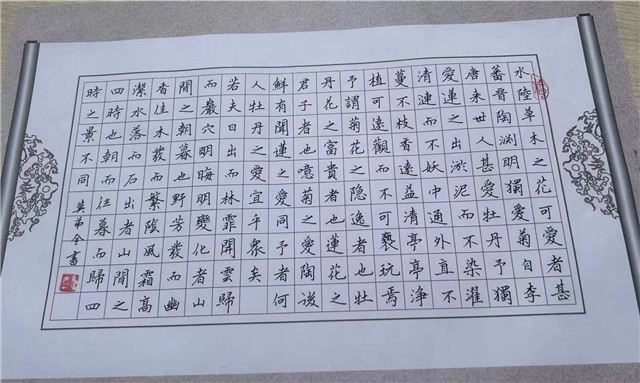 水陸草木之花可愛者甚
蕃晉陶淵明獨愛菊自李
唐来世人甚愛牡丹予獨
愛蓮之出淤泥而不染濯
清漣而不妖中通外直不
蔓不枝香遠益清亭亭淨
植可遠觀而不可褻玩焉
予謂菊花之隐逸者也牡
丹花之富貴者也蓮花之
君子者也噫菊之愛陶後
鮮有聞蓮之愛同予者何
人牡丹之愛宜乎衆矣
若夫日出而林霏開雲歸
而巖穴暝晦明變化者山
間之朝暮也野芳發而幽
香佳木秀而繁陰風霜高
潔水落而石出者山間之
四時也朝而往暮而歸四
時之景不同 書